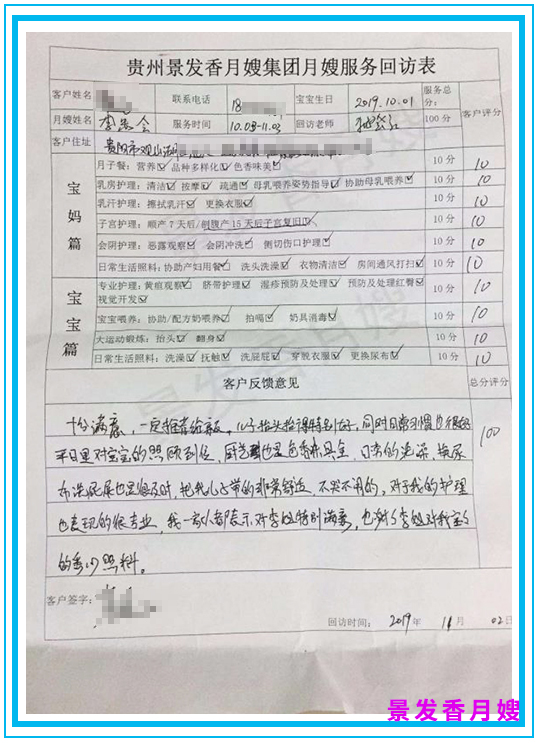 贵州景发香月嫂集团月嫂服务回访表
客户姓名 联系电话 18 宝宝生日 2019.10.01 服务总分: 客户评分
月嫂姓名 李 会 服务时间 10.03-11.03 回访老师 100分
客户住址 贵阳市观山湖
宝妈篇
月子餐:营养☑ 品种多样化☑ 色香味美☑ 10分 10
乳房护理:清洁☑ 按摩☑ 疏通☑ 母乳喂养姿势指导☑ 协助母乳喂养☑ 10分 10
乳汗护理:擦拭乳汗☑ 更换衣服☑ 10分 10
子宫护理:顺产7天后/剖腹产15天后子宫复旧☑ 10分 10
会阴护理:恶露观察☑ 会阴冲洗☑ 侧切伤口护理☑ 10分 10
日常生活照料:协助产妇用餐☑ 洗头洗澡☑ 衣物清洁☑ 房间通风打扫☑ 10分 10
宝宝篇
专业护理:黄疸观察☑ 脐带护理☑ 湿疹预防及处理☑ 预防及处理红臀☑
视觉开发☑ 10分 10
宝宝喂养:协助/配方奶喂养☑ 拍嗝☑ 奶具消毒☑ 10分 10
大运动锻炼:抬头☑ 翻身☑ 10分 10
日常生活照料:洗澡☑ 抚触☑ 洗屁屁☑ 穿脱衣服☑ 更换尿布☑ 10分 10
客户反馈意见 总分评分
十分满意,一定推荐给亲友。儿子抬头抬得特别好,同时日常习惯也很好
平日里对宝宝的照顾到位,厨艺也是色香味具全,日常的洗澡、换尿
布洗屁屁也是很及时,把我儿子带的非常舒适,不哭不闹的,对于我的护理
也表现的很专业,我一家人都表示对李姐特别满意,也谢谢李姐对我宝宝
的悉心照料。
100
客户签字:
回访时间: 2019年 11月 02日
景发香月嫂
景发香月嫂